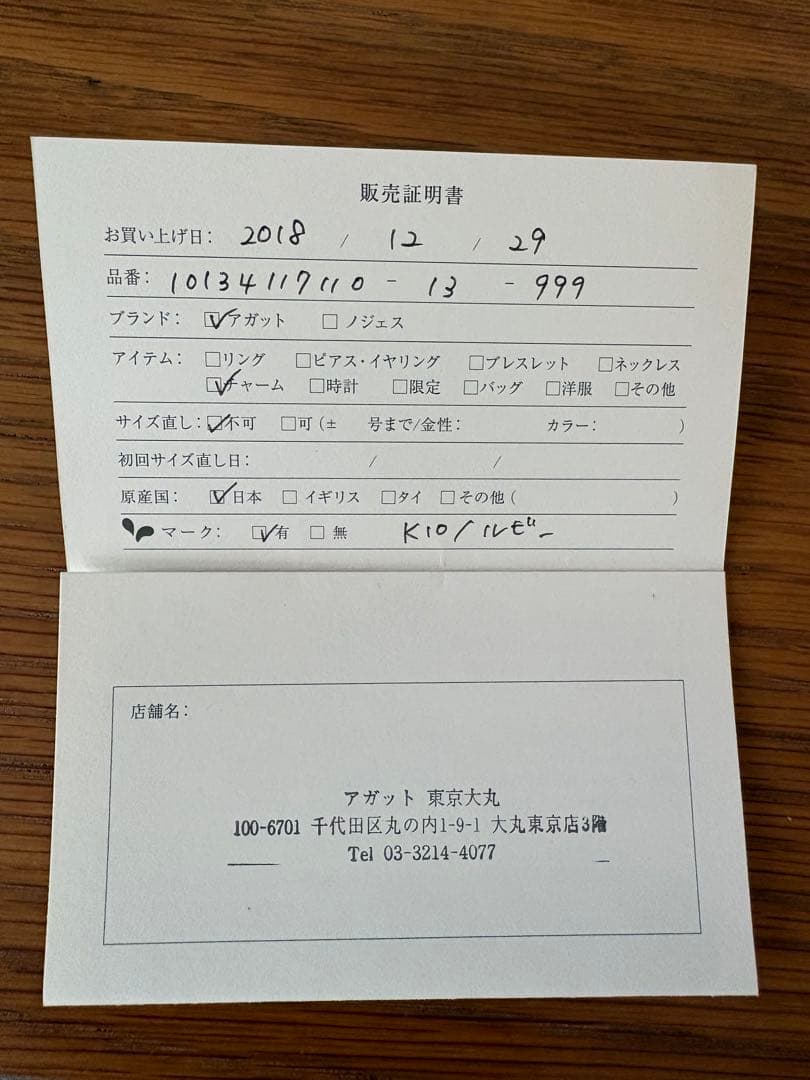 販売証明書
お買い上げ日: 2018 / 12 / 29
品番: 10134117110 - 13 - 999
ブランド: ☑アガット □ノジェス
アイテム: □リング □ピアス・イヤリング □ブレスレット □ネックレス
☑チャーム □時計 □限定 □バッグ □洋服 □その他
サイズ直し: ☑不可 □可(± 号まで/金性: カラー: )
初回サイズ直し日: / /
原産国: ☑日本 □イギリス □タイ □その他( )
マーク: ☑有 □無 K10/ルビー
店舗名:
アガット 東京大丸
100-6701 千代田区丸の内1-9-1 大丸東京店3階
Tel 03-3214-4077